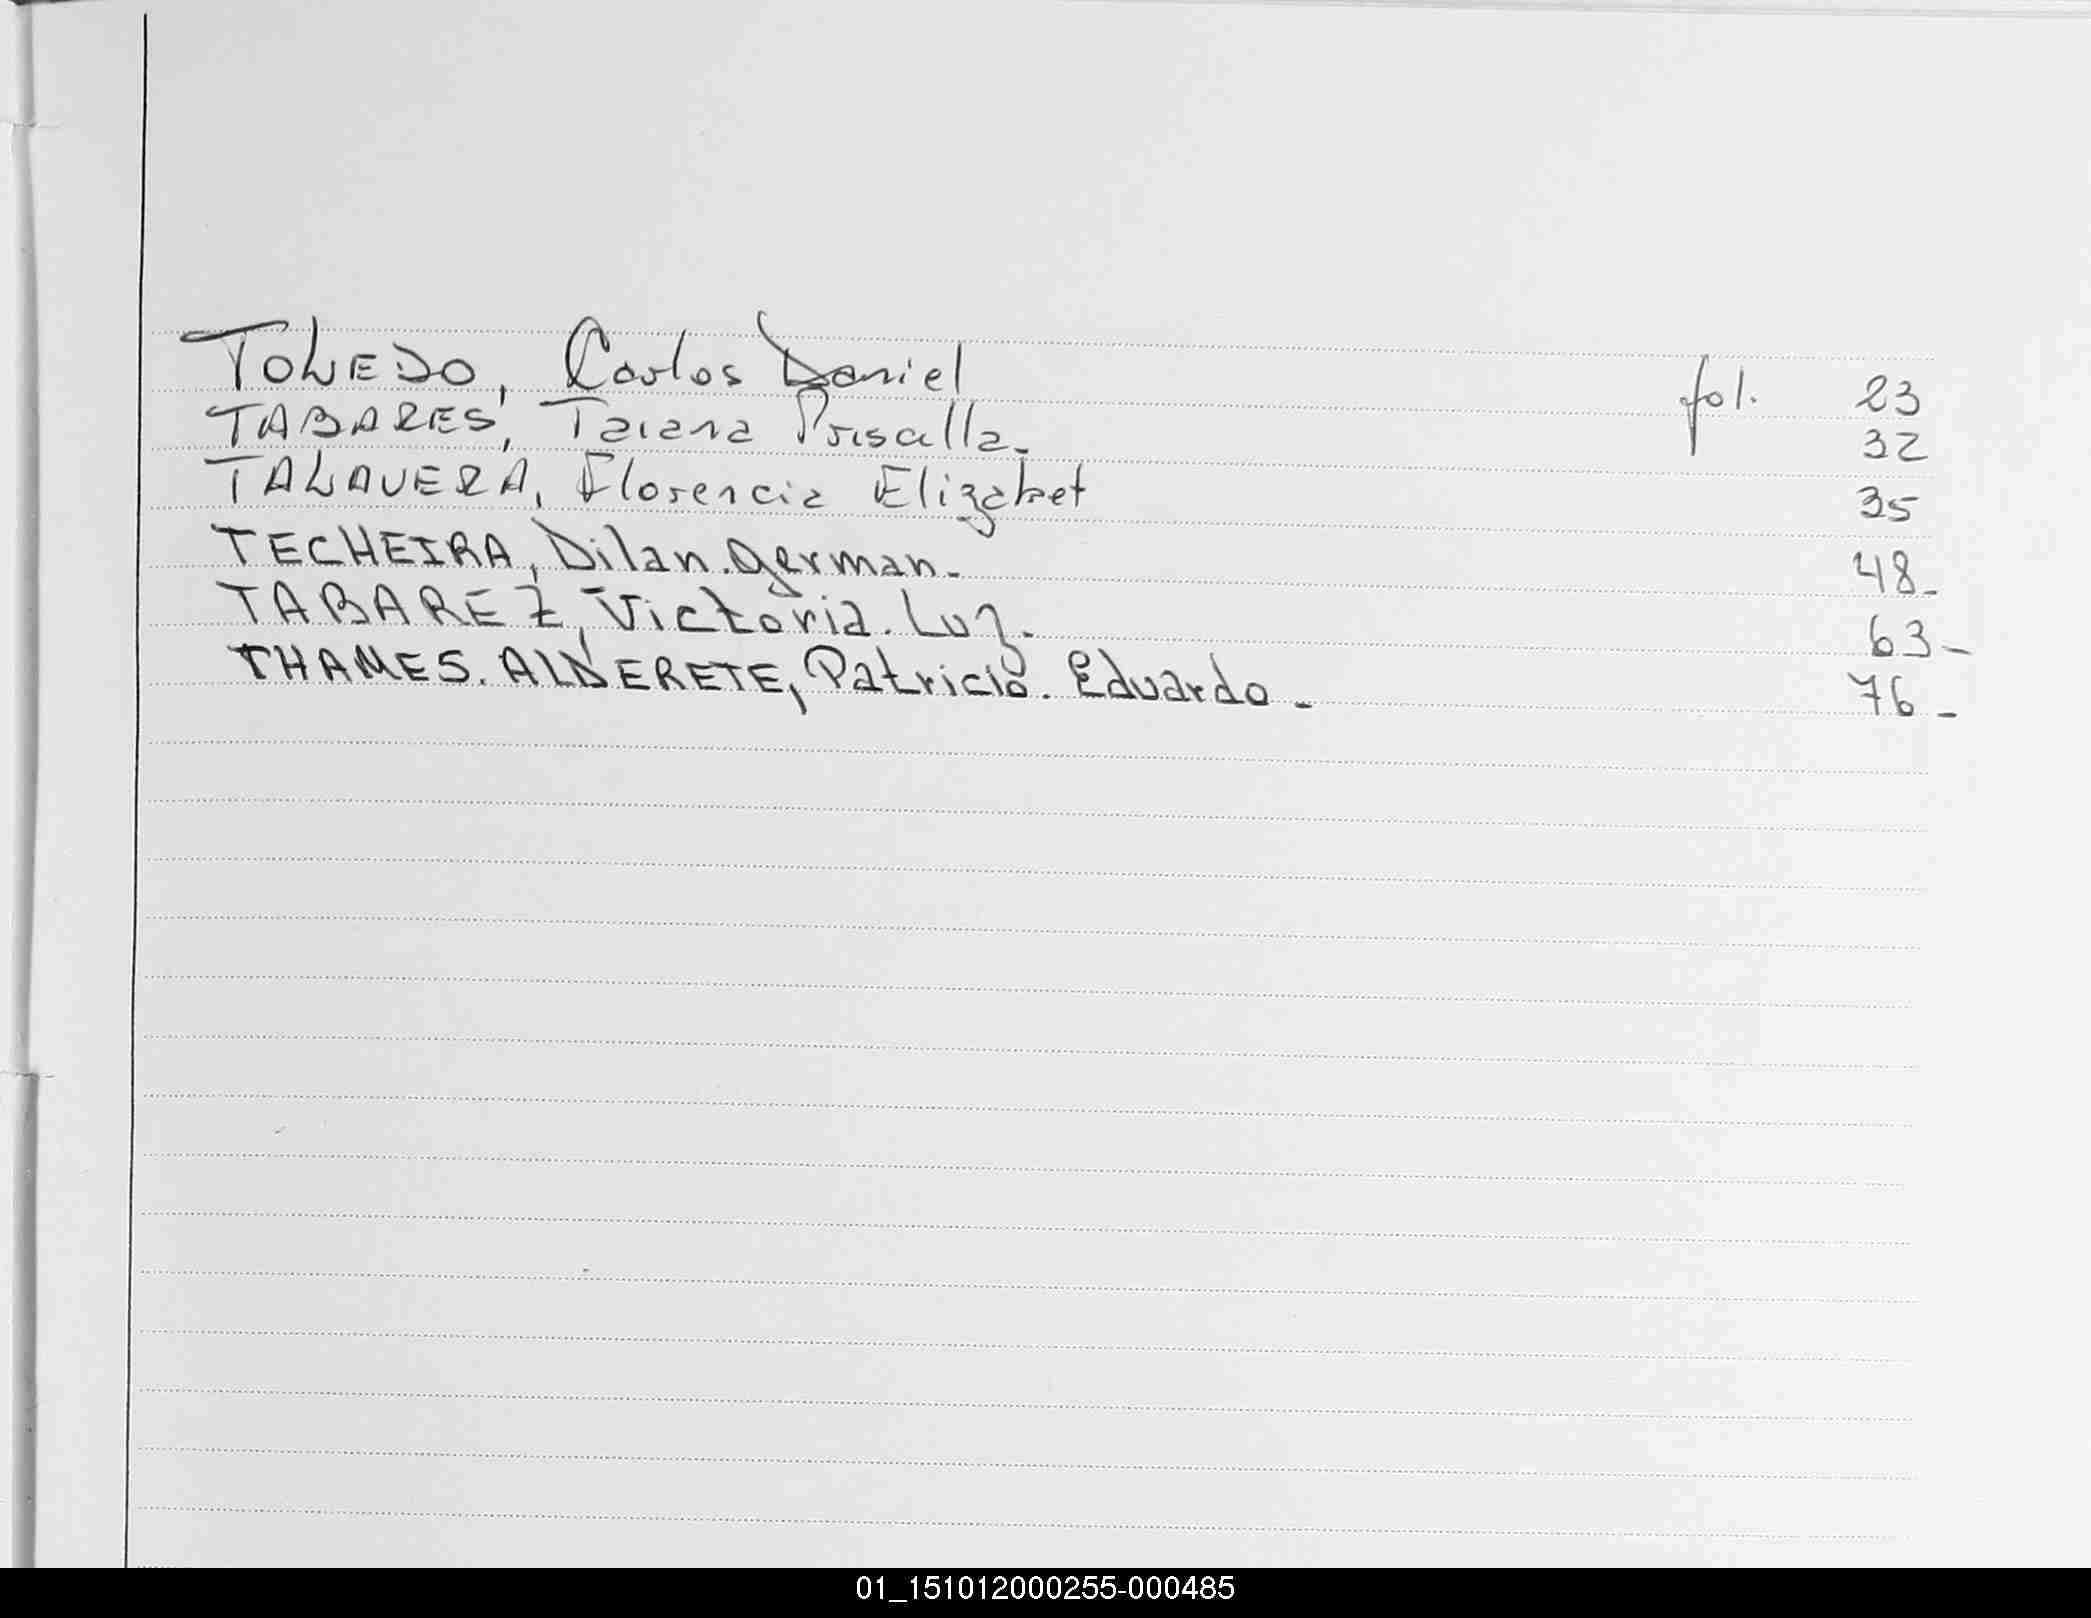 TOLEDO, Carlos Daniel fol. 23
TABARES, Taiana Priscilla. 32
TALAVERA, Florencia Elizabet 35
TECHEIRA, Dilan. German. 48-
TABAREZ, Victoria. Luz. 63-
THAMES. ALDERETE, Patricio. Eduardo- 76-
01_151012000255-000485